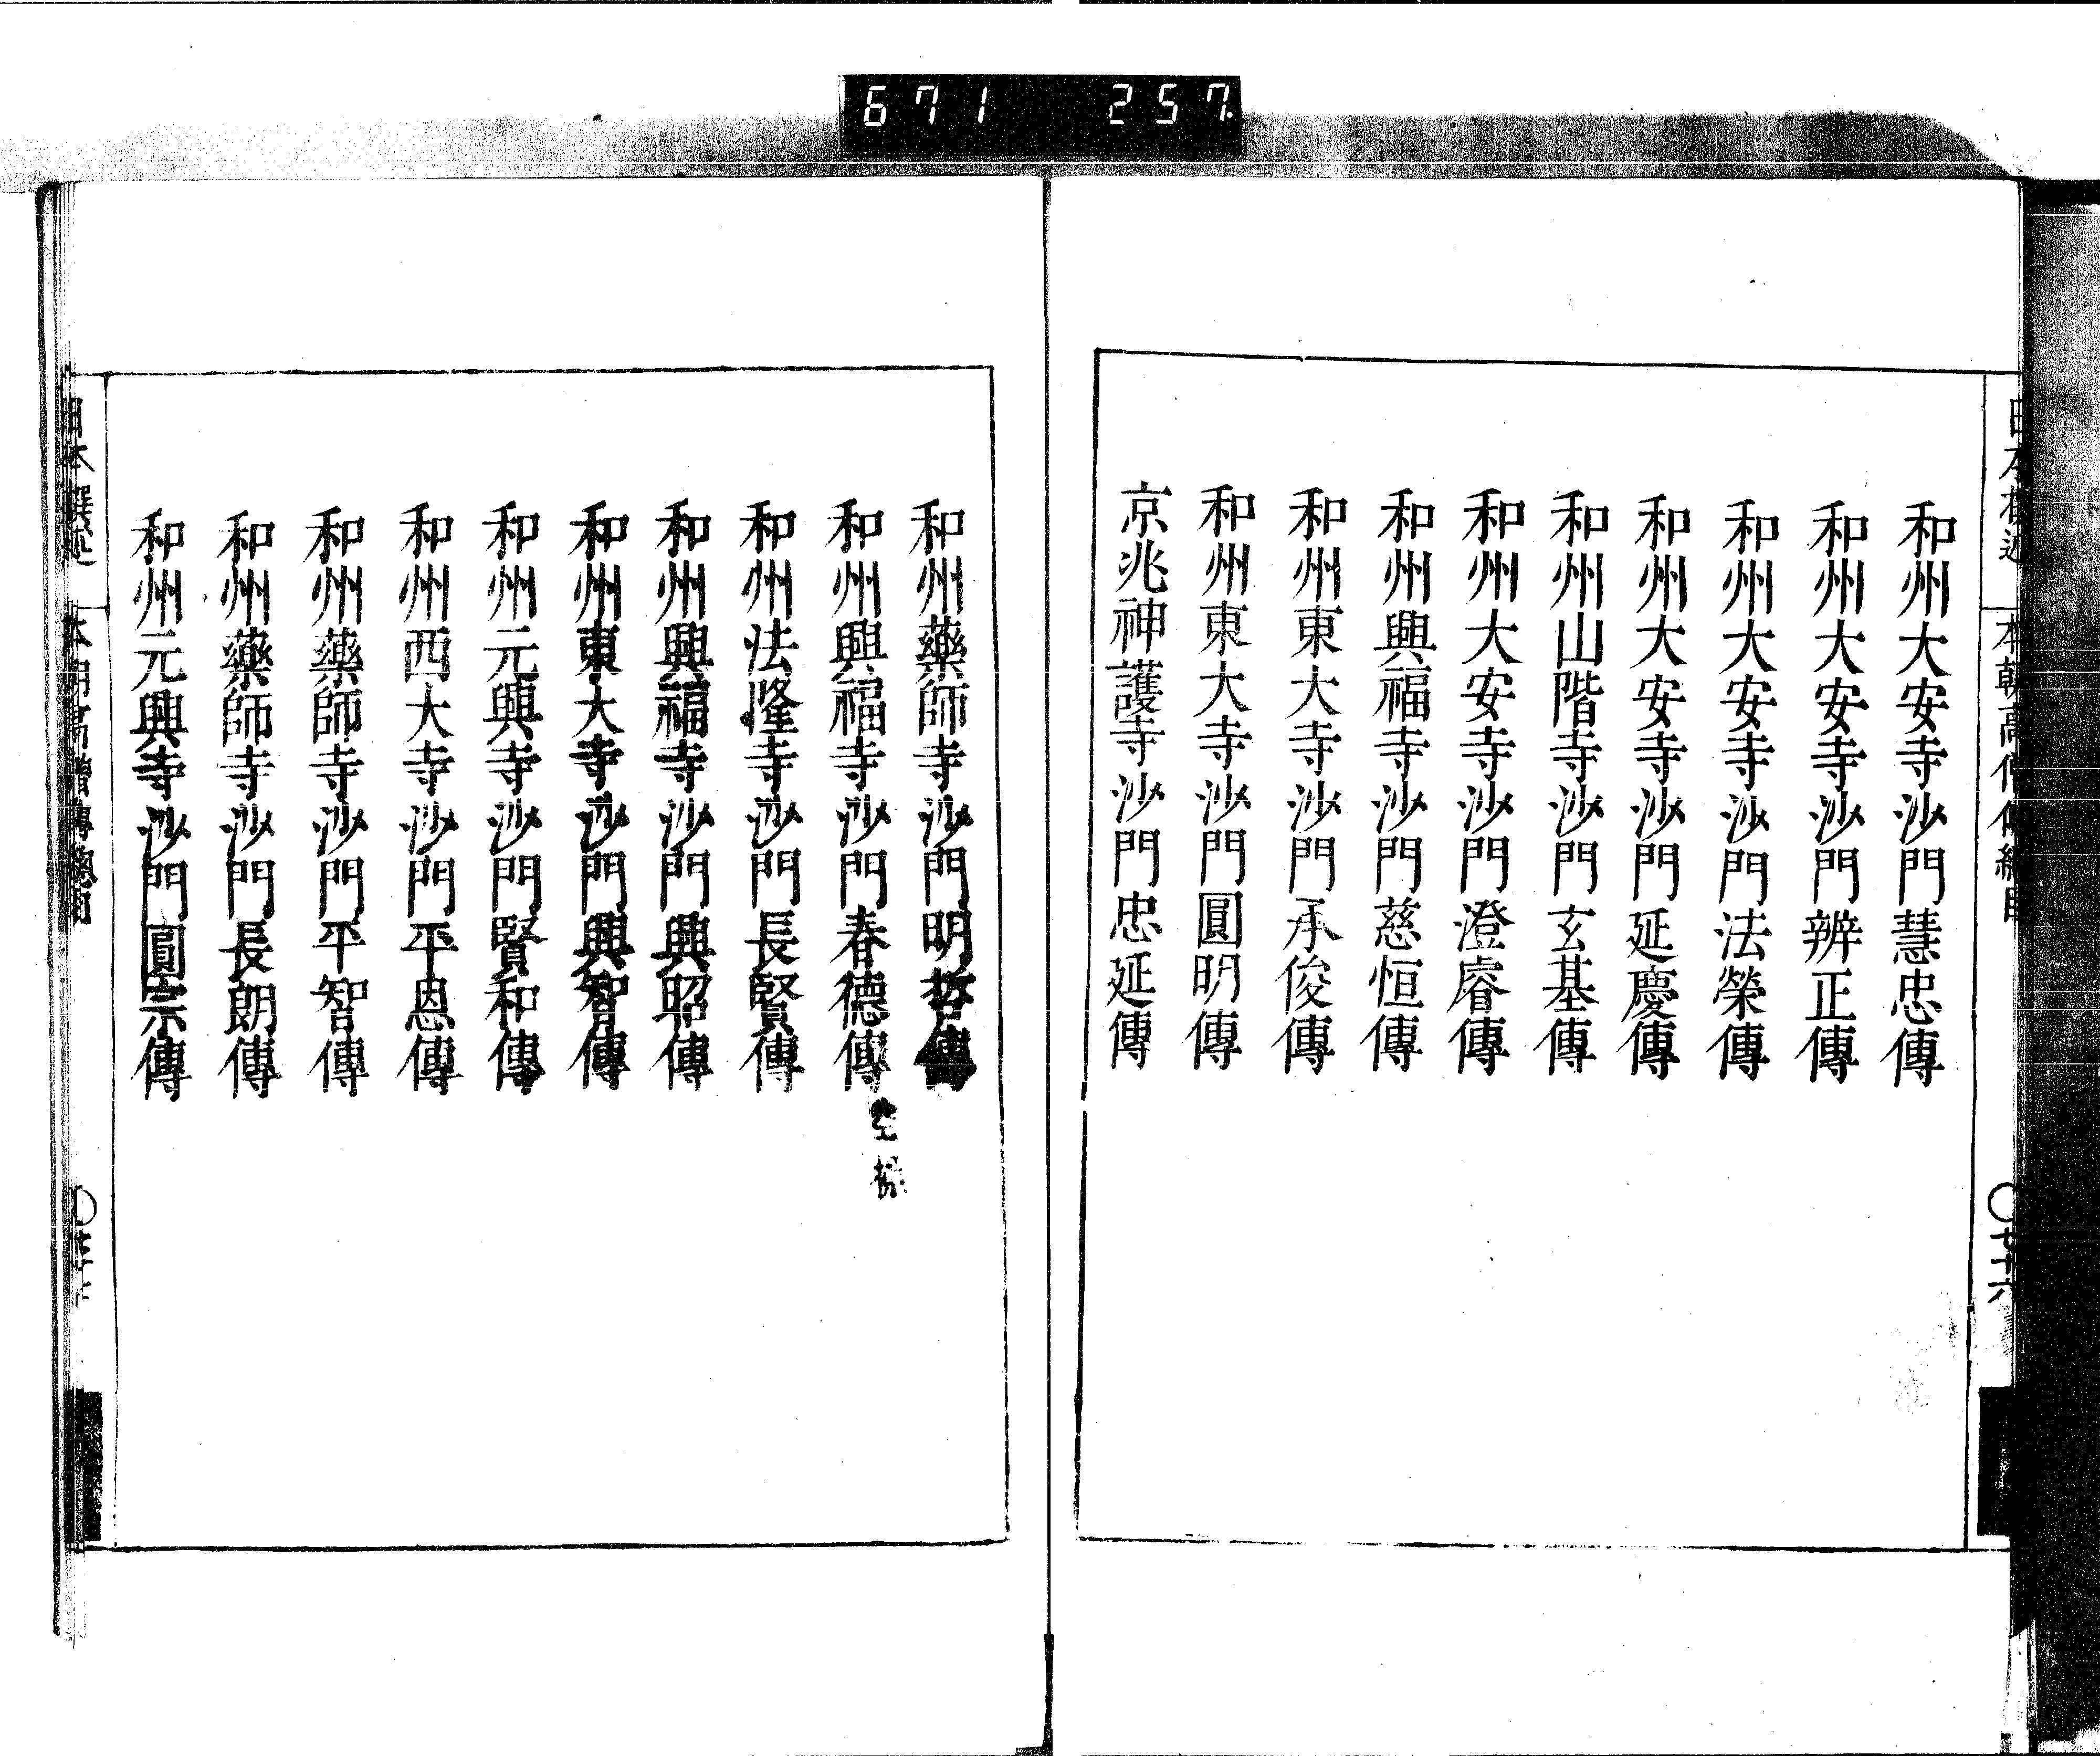 671 257
和州大安寺沙門慧忠傳
和州大安寺沙門辨正傳
和州大安寺沙門法榮傳
和州大安寺沙門延慶傳
和州山階寺沙門玄基傳
和州大安寺沙門澄睿傳
和州興福寺沙門慈恒傳
和州東大寺沙門承俊傳
和州東大寺沙門圓明傳
京兆神護寺沙門忠延傳
和州藥師寺沙門明哲傳
和州興福寺沙門春德傳
和州法隆寺沙門長賢傳
和州興福寺沙門興昭傳
和州東大寺沙門興智傳
和州元興寺沙門賢和傳
和州西大寺沙門平恩傳
和州藥師寺沙門平智傳
和州藥師寺沙門長朗傳
和州元興寺沙門圓宗傳